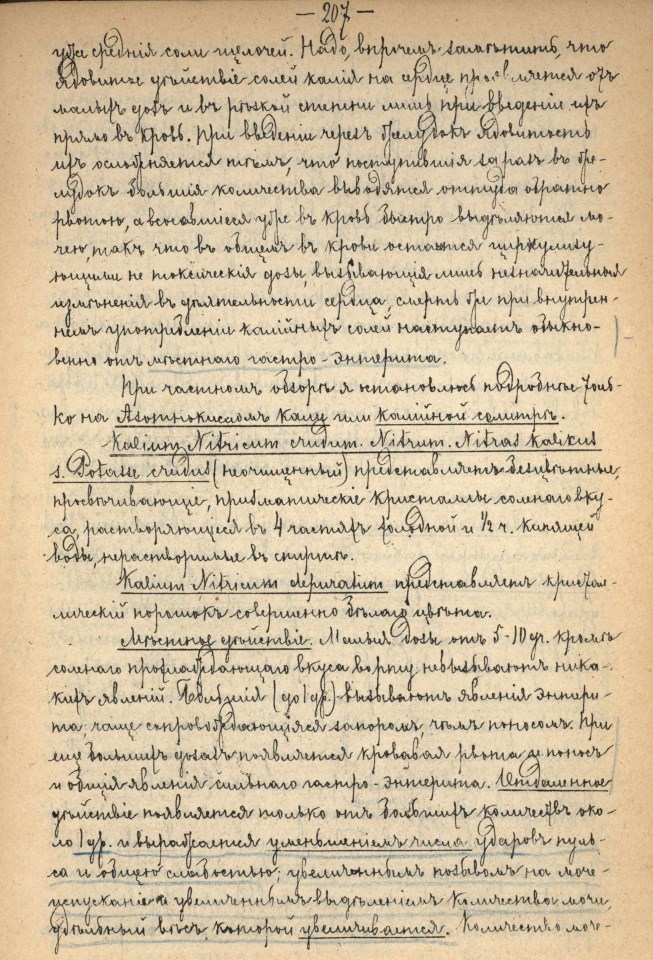 — 207 —
уже среднія соли щелочей. Надо, впрочемъ замѣтить, что
ядовитое дѣйствіе солей калія на сердце проявляется отъ
малыхъ дозъ и въ рѣзкой степени лишь при введеніи ихъ
прямо въ кровь. При введеніи черезъ желудокъ ядовитость
ихъ ослобняется тѣмъ, что поступившія заразъ въ же-
лудокъ большія количества выводятся оттуда обратно
рвотою, а всосавшіеся уже въ кровь быстро выдѣляются мо-
чею, такъ что въ общемъ въ крови остаются циркулиру-
ющими не токсическія дозы, вызывающія лишь незначительныя
измѣненія въ дѣятельности сердца, смерть же при внутрен-
немъ употребленіи калійныхъ солей наступаетъ обыкно-
венно отъ мѣстнаго гастро-энтерита.
При частномъ обзорѣ я остановлюсь подробнѣе толь-
ко на Азотнокисломъ кали или калійной селитрѣ.
Kalium Nitricum crudum. Nitrum. Nitras kalikus
s. Potasse crudus (неочищенный) представляетъ безцвѣтные,
просвѣчивающіе, призматическіе кристаллы соленаго вку-
са, растворяющіеся въ 4 частяхъ холодной и 1/2 ч. кипящей
воды, нерастворимые въ спиртѣ.
Kalium Nitricum depuratum представляетъ кристал-
лическій порошокъ совершенно бѣлаго цвѣта.
Мѣстное дѣйствіе. Малыя дозы отъ 5-10 gr. кромѣ
соленаго прохлаждающаго вкуса во рту невызываютъ ника-
кихъ явленій. Большія (до 1 др.) вызываютъ явленія энтери-
та чаще сопровождающіяся запоромъ, чѣмъ поносомъ. При
еще большихъ дозахъ появляется кровавая рвота и поносъ
и общія явленія сильнаго гастро-энтерита. Отдаленное
дѣйствіе появляется только отъ большихъ количествъ око-
ло 1 др. и выражается уменьшеніемъ числа ударовъ пуль-
са и общею слабостью; увеличеннымъ позывомъ на моче-
испусканіе и увеличеннымъ выдѣленіемъ количества мочи,
удѣльный вѣсъ которой увеличивается. Количество моче-